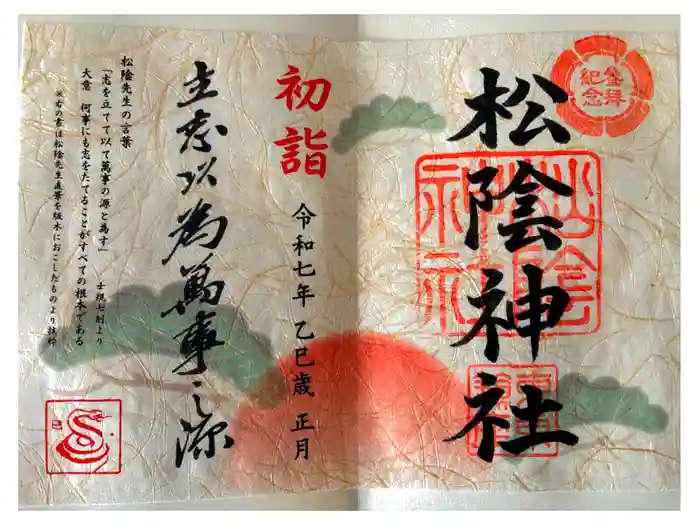 参拝
紀念
松陰神社
初詣
令和七年 乙巳歳 正月
立志以為萬事之源
松陰先生の言葉
「志を立てて以て萬事の源と為す」 士規七則より
大意 何事にも志をたてることがすべての根本である
※右の書は松陰先生直筆を版木におこしたものより抜粋
巳